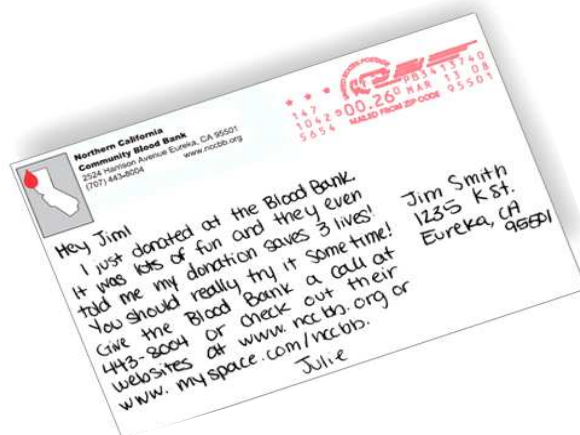 Northern California
Community Blood Bank
2524 Harrison Avenue Eureka, CA 95501
(707) 443-8004 www.nccbb.org
UNITED STATES POSTAGE
147
1042 $00.26⁰ PB3413740
5654 MAR 13 08
MAILED FROM ZIP CODE 95501
Hey Jim!
I just donated at the Blood Bank.
It was lots of fun and they even
told me my donation saves 3 lives!
You should really try it sometime!
Give the Blood Bank a call at
443-8004 or check out their
websites at www.nccbb.org or
www.myspace.com/nccbb.
Julie
Jim Smith
1235 K St.
Eureka, CA
95501